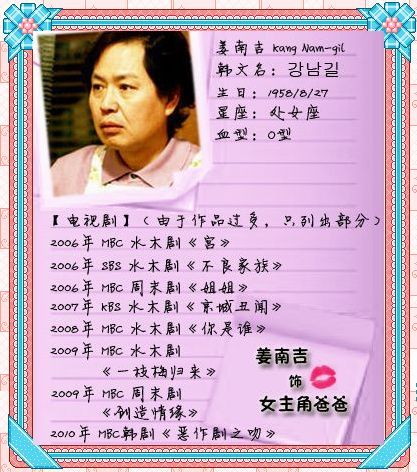 姜南吉 Kang Nam-gil
韩文名：강남길
生日：1958/8/27
星座：处女座
血型：O型
【电视剧】（由于作品过多，只列出部分）
2006年 MBC 水木剧《宫》
2006年 SBS 水木剧《不良家族》
2006年 MBC 周末剧《姐姐》
2007年 KBS 水木剧《京城丑闻》
2008年 MBC 水木剧《你是谁》
2009年 MBC 水木剧
《一枝梅归来》
2009年 MBC 周末剧
《创造情缘》
2010年 MBC韩剧《恶作剧之吻》
姜南吉
饰
女主角爸爸